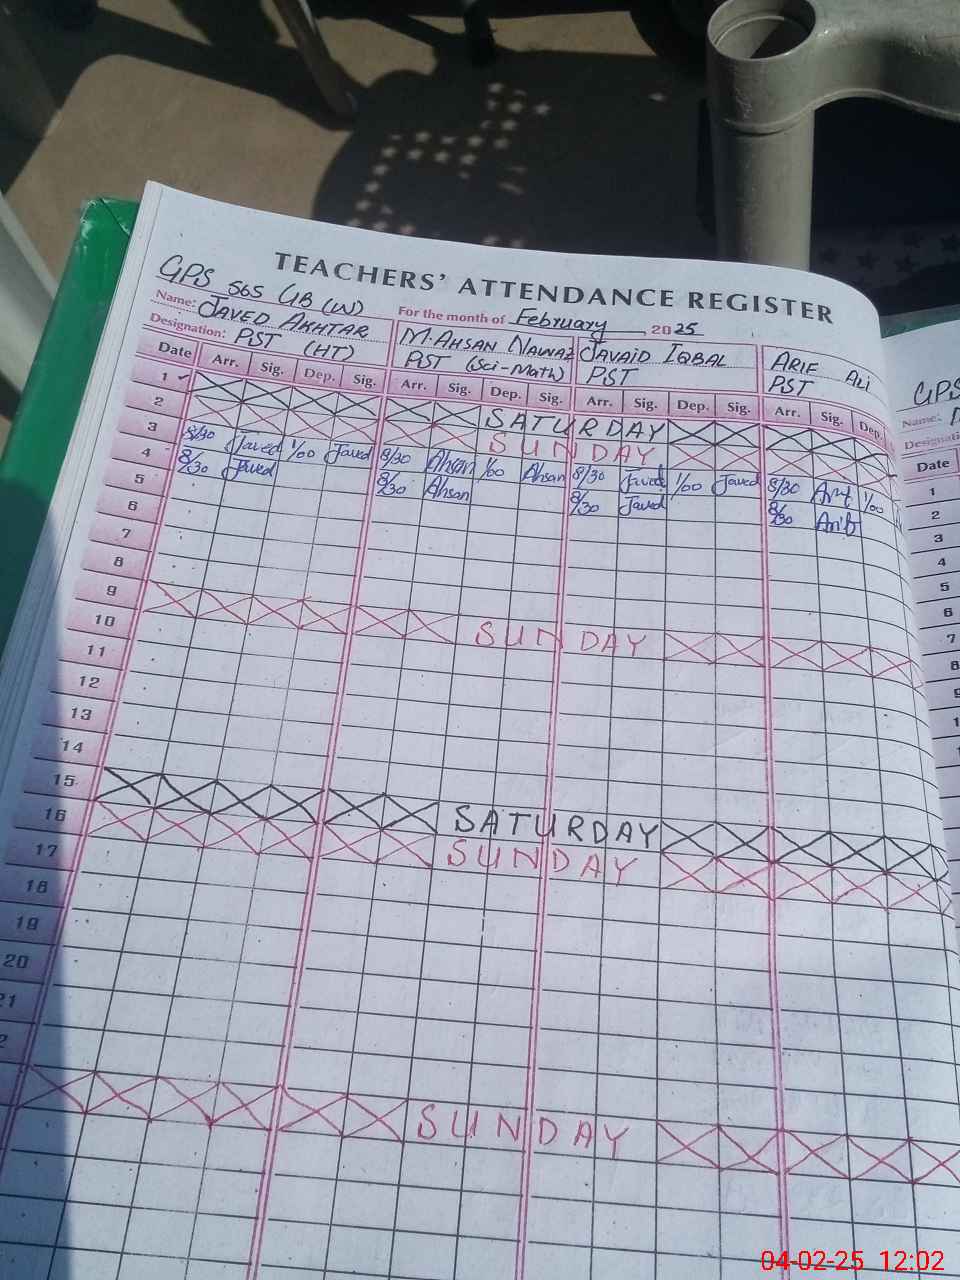 TEACHERS' ATTENDANCE REGISTER
GPS 565 GB (W)
For the month of February 2025
Name: JAVED AKHTAR M. AHSAN NAWAZ JAVAID IQBAL ARIF ALI
Designation: PST (HT) PST (Sci-Math) PST PST
Date Arr. Sig. Dep. Sig. Arr. Sig. Dep. Sig. Arr. Sig. Dep. Sig. Arr. Sig. Dep.
1 SATURDAY
2 SUNDAY
3 8/30 Javed 1/00 Javed 8/30 Ahsan 1/00 Ahsan 8/30 Javed 1/00 Javed 8/30 Arif 1/00
4 8/30 Javed 8/30 Ahsan 8/30 Javed 8/30 Arif
5
6
7
8
9 SUNDAY
10
11
12
13
14
15 SATURDAY
16 SUNDAY
17
18
19
20
21
2
SUNDAY
GPS
Name:
Date
1
2
3
4
5
6
7
8
9
04-02-25 12:02